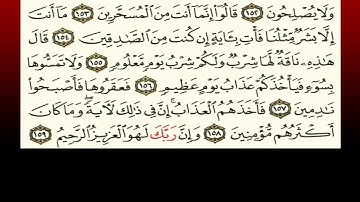 وَلَا يُصْلِحُونَ ١٥٢ قَالُوٓا۟ إِنَّمَآ أَنتَ مِنَ ٱلْمُسَحَّرِينَ ١٥٣ مَآ أَنتَ
إِلَّا بَشَرٌ مِّثْلُنَا فَأْتِ بِـَٔايَةٍ إِن كُنتَ مِنَ ٱلصَّٰدِقِينَ ١٥٤ قَالَ
هَٰذِهِۦ نَاقَةٌ لَّهَا شِرْبٌ وَلَكُمْ شِرْبُ يَوْمٍ مَّعْلُومٍ ١٥٥ وَلَا تَمَسُّوهَا
بِسُوٓءٍ فَيَأْخُذَكُمْ عَذَابُ يَوْمٍ عَظِيمٍ ١٥٦ فَعَقَرُوهَا فَأَصْبَحُوا۟
نَٰدِمِينَ ١٥٧ فَأَخَذَهُمُ ٱلْعَذَابُ إِنَّ فِى ذَٰلِكَ لَءَايَةً وَمَا كَانَ
أَكْثَرُهُم مُّؤْمِنِينَ ١٥٨ وَإِنَّ رَبَّكَ لَهُوَ ٱلْعَزِيزُ ٱلرَّحِيمُ ١٥٩